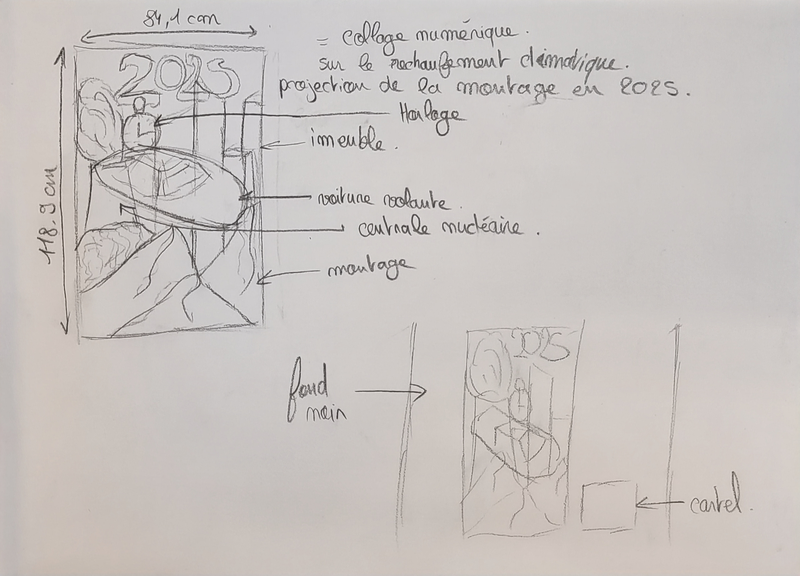 84,1 cm
= collage numérique.
sur le rechauffement climatique.
projection de la montage en 2025.
2025
Horloge
imeuble.
voiture volante.
118.9 cm
centrale nucléaire.
montage
2025
fond
noir
cartel.